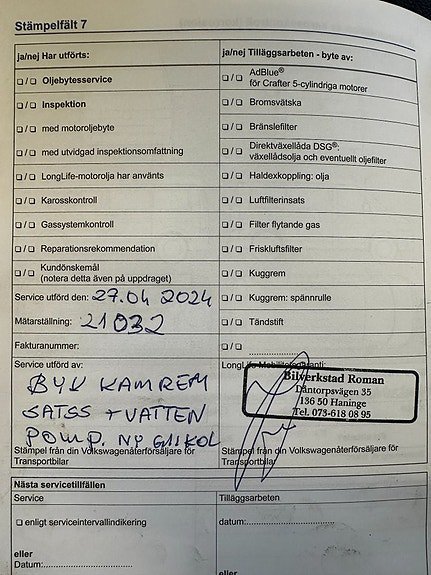 Stämpelfält 7
ja/nej Har utförts:
ja/nej Tilläggsarbeten - byte av:
❏ / ❏ Oljebytesservice
❏ / ❏ AdBlue®
för Crafter 5-cylindriga motorer
❏ / ❏ Inspektion
❏ / ❏ Bromsvätska
❏ / ❏ med motoroljebyte
❏ / ❏ Bränslefilter
❏ / ❏ med utvidgad inspektionsomfattning
❏ / ❏ Direktväxellåda DSG®:
växellådsolja och eventuellt oljefilter
❏ / ❏ LongLife-motorolja har använts
❏ / ❏ Haldexkoppling: olja
❏ / ❏ Karosskontroll
❏ / ❏ Luftfilterinsats
❏ / ❏ Gassystemkontroll
❏ / ❏ Filter flytande gas
❏ / ❏ Reparationsrekommendation
❏ / ❏ Friskluftsfilter
❏ / ❏ Kundönskemål
(notera detta även på uppdraget)
❏ / ❏ Kuggrem
Service utförd den: 29.04 2024
❏ / ❏ Kuggrem: spännrulle
Mätarställning: 21032
❏ / ❏ Tändstift
Fakturanummer:
❏ / ❏ ....................
Service utförd av:
LongLife Mobilitetsgaranti:
BYK KAMREM
SATSS + VATTEN
POMP. NY GLIKOL
Bilverkstad Roman
Dåntorpsvägen 35
136 50 Haninge
Tel. 073-618 08 95
Stämpel från din Volkswagenåterförsäljare för
Transportbilar
Stämpel från din Volkswagenåterförsäljare för
Transportbilar
Nästa servicetillfällen
Service
Tilläggsarbeten
❏ enligt serviceintervallindikering
datum:
eller
Datum:
eller